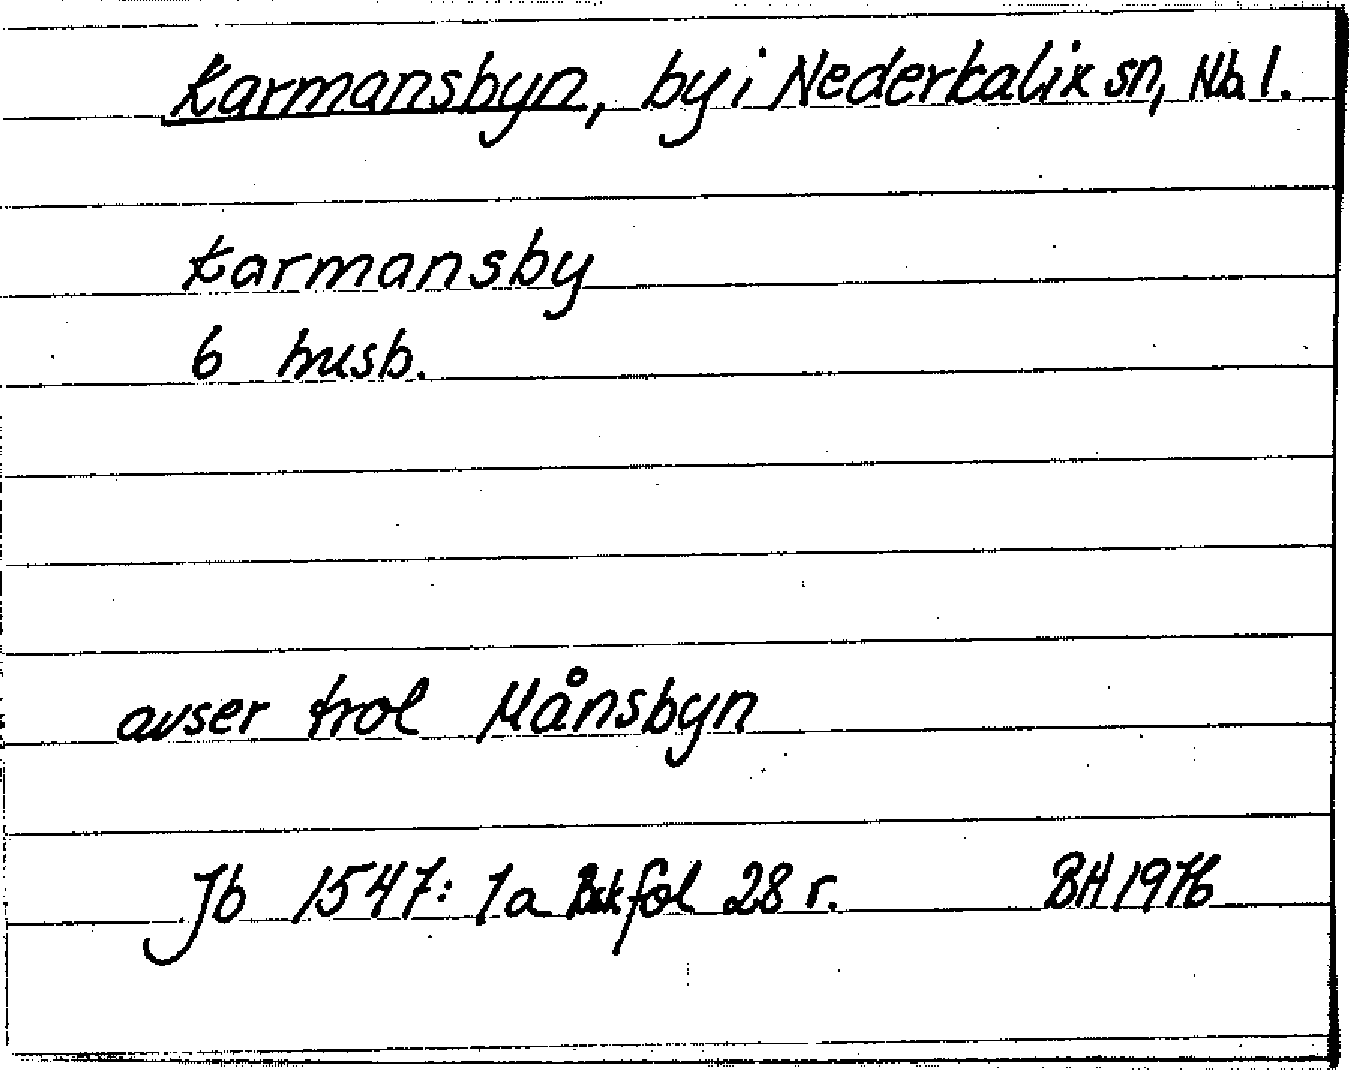 Karmansbyn, by i Nederkalix sn, Nb. l.
Karmansby
6 husb.
avser trol Månsbyn
Jb 1547: 1a Bsk fol 28 r. BH 1976